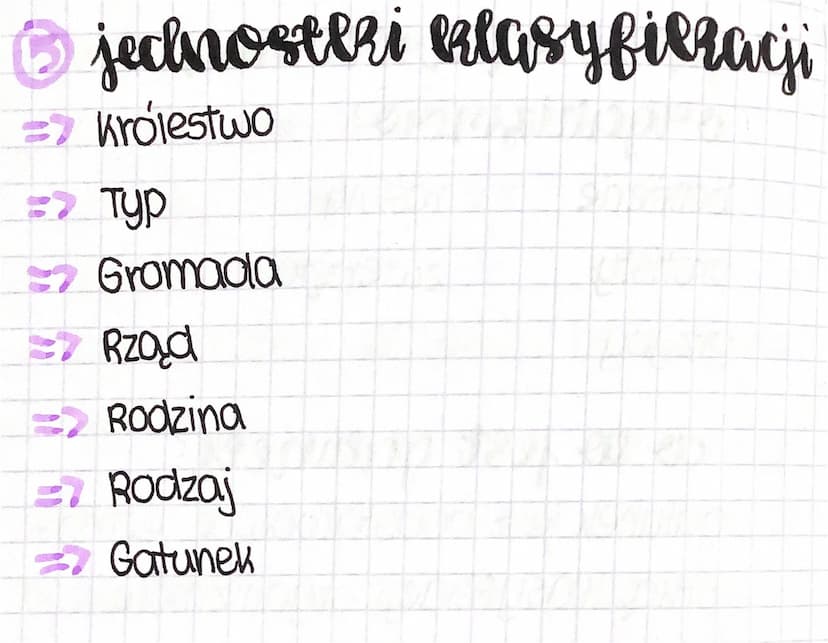 5 jednostki klasyfikacji
=> Królestwo
=> Typ
=> Gromada
=> Rząd
=> Rodzina
=> Rodzaj
=> Gatunek